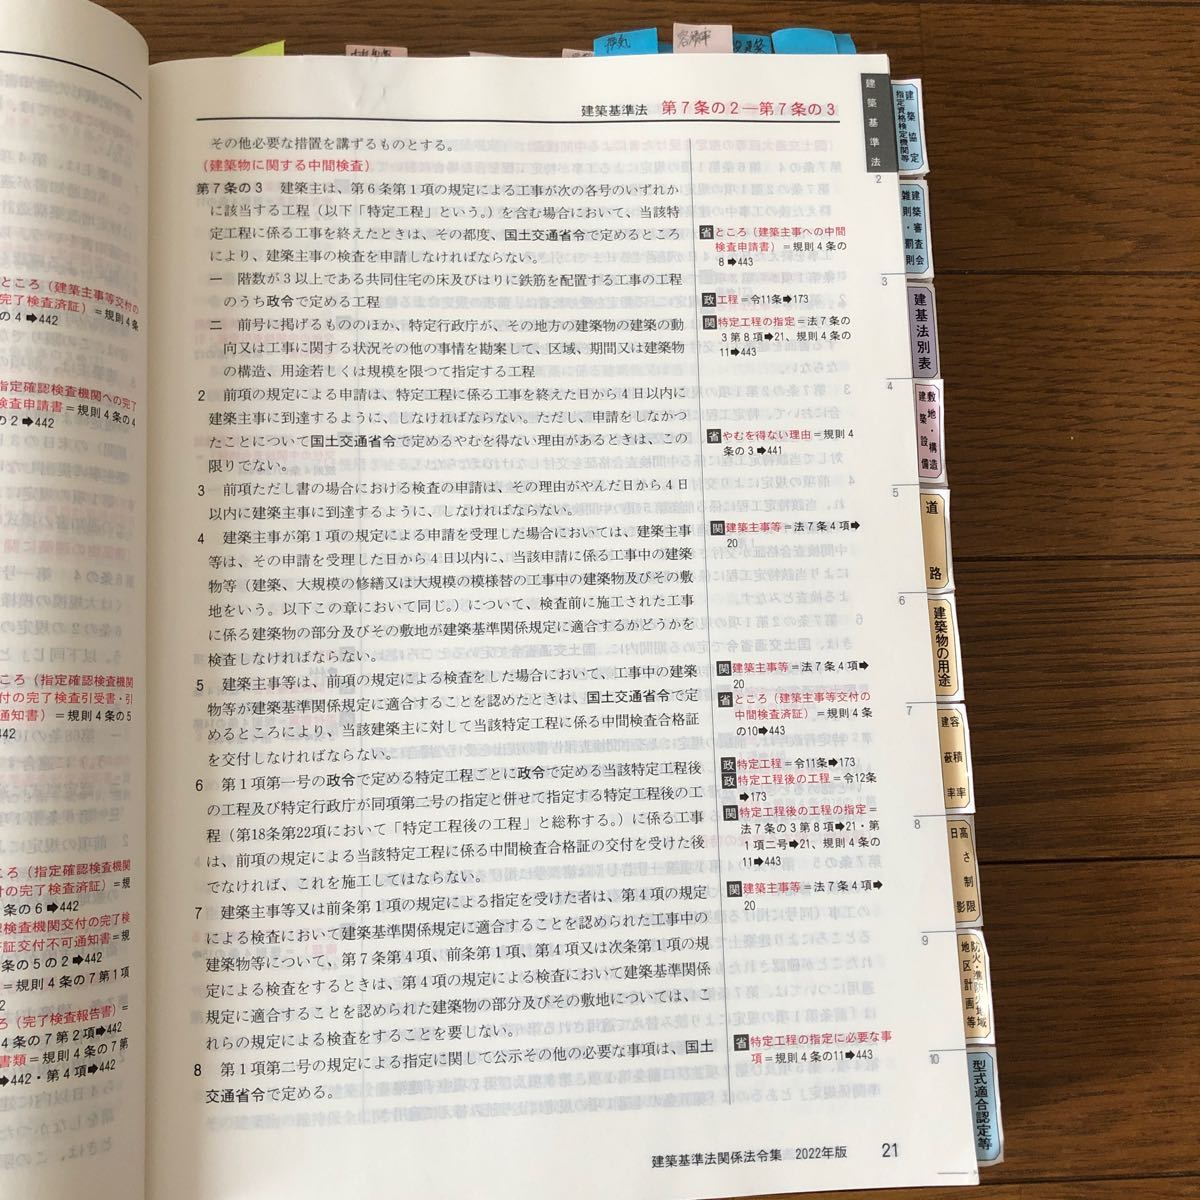 換気
容積率
建築基準法　第７条の２―第７条の３
建築基準法
その他必要な措置を講ずるものとする。
（建築物に関する中間検査）
第７条の３　建築主は、第６条第１項の規定による工事が次の各号のいずれか
に該当する工程（以下「特定工程」という。）を含む場合において、当該特
定工程に係る工事を終えたときは、その都度、国土交通省令で定めるところ
により、建築主事の検査を申請しなければならない。
一　階数が３以上である共同住宅の床及びはりに鉄筋を配置する工事の工程
のうち政令で定める工程
二　前号に掲げるもののほか、特定行政庁が、その地方の建築物の建築の動
向又は工事に関する状況その他の事情を勘案して、区域、期間又は建築物
の構造、用途若しくは規模を限つて指定する工程
２　前項の規定による申請は、特定工程に係る工事を終えた日から４日以内に
建築主事に到達するように、しなければならない。ただし、申請をしなかつ
たことについて国土交通省令で定めるやむを得ない理由があるときは、この
限りでない。
３　前項ただし書の場合における検査の申請は、その理由がやんだ日から４日
以内に建築主事に到達するように、しなければならない。
４　建築主事が第１項の規定による申請を受理した場合においては、建築主事
等は、その申請を受理した日から４日以内に、当該申請に係る工事中の建築
物等（建築、大規模の修繕又は大規模の模様替の工事中の建築物及びその敷
地をいう。以下この章において同じ。）について、検査前に施工された工事
に係る建築物の部分及びその敷地が建築基準関係規定に適合するかどうかを
検査しなければならない。
５　建築主事等は、前項の規定による検査をした場合において、工事中の建築
物等が建築基準関係規定に適合することを認めたときは、国土交通省令で定
めるところにより、当該建築主に対して当該特定工程に係る中間検査合格証
を交付しなければならない。
６　第１項第一号の政令で定める特定工程ごとに政令で定める当該特定工程後
の工程及び特定行政庁が同項第二号の指定と併せて指定する特定工程後の工
程（第18条第22項において「特定工程後の工程」と総称する。）に係る工事
は、前項の規定による当該特定工程に係る中間検査合格証の交付を受けた後
でなければ、これを施工してはならない。
７　建築主事等又は前条第１項の規定による指定を受けた者は、第４項の規定
による検査において建築基準関係規定に適合することを認められた工事中の
建築物等について、第７条第４項、前条第１項、第４項又は次条第１項の規
定による検査をするときは、第４項の規定による検査において建築基準関係
規定に適合することを認められた建築物の部分及びその敷地については、こ
れらの規定による検査をすることを要しない。
８　第１項第二号の規定による指定に関して公示その他の必要な事項は、国土
交通省令で定める。
省ところ（建築主事への中間
検査申請書）＝規則４条の
８➡443
政工程＝令11条➡173
関特定工程の指定＝法７条の
３第８項➡21、規則４条の
11➡443
省やむを得ない理由＝規則４
条の３➡441
関建築主事等＝法７条４項➡
20
関建築主事等＝法７条４項➡
20
省ところ（建築主事等交付の
中間検査済証）＝規則４条
の10➡443
政特定工程＝令11条➡173
政特定工程後の工程＝令12条
➡173
関特定工程後の工程の指定＝
法７条の３第８項➡21・第
１項二号➡21、規則４条の
11➡443
関建築主事等＝法７条４項➡
20
省特定工程の指定に必要な事
項＝規則４条の11➡443
建築基準法関係法令集　2022年版　21
ところ（建築主事等交付の
完了検査済証）＝規則４条
の４➡442
指定確認検査機関への完了
検査申請書＝規則４条の４
の２➡442
ころ（指定確認検査機関
交付の完了検査引受書・引
通知書）＝規則４条の５
442
ころ（指定確認検査機関
付の完了検査済証）＝規
条の６➡442
認検査機関交付の完了検
証交付不可通知書＝規
条の５の２➡442
４条の７第１項
ろ（完了検査報告書）＝
４条の７第２項➡442
書類＝規則４条の７第
➡442・第４項➡442
2
建築協定
指定資格検定機関等
建築審査会
雑則・罰則
3
建基法別表
4
敷地・構造
建築設備
5
道路
6
建築物の用途
7
容積率
建蔽率
8
高さ制限
日影
9
防火・準防火地域
地区計画等
10
型式適合認定等